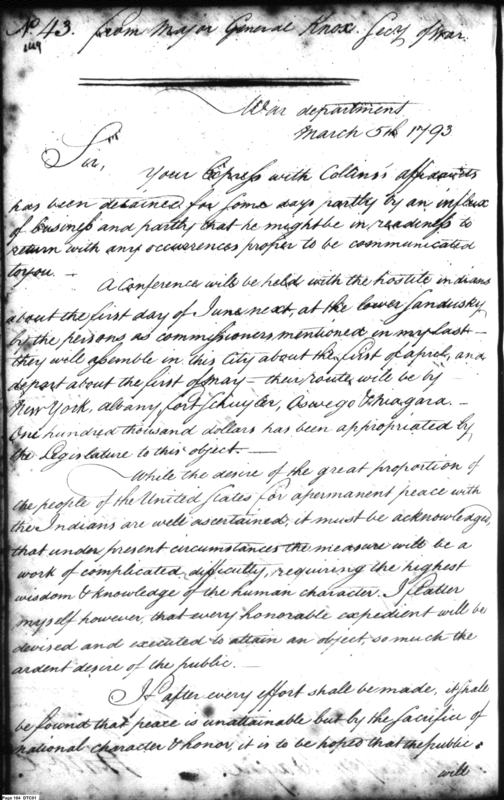 No. 43. from Major General Knox. Secy of War.
War department
March 5th 1793
Sir,
Your Express with Collins's affidavits
has been detained for some days partly by an influx
of business and partly that he might be in readiness to
return with any occurrences proper to be communicated
to you. —
A Conference will be held with the hostile indians
about the first day of June next, at the lower Sandusky
by the persons, as commissioners mentioned in my last —
they will assemble in this City about the first of april, and
depart about the first of May — their route will be by
New York, albany, fort Schuyler, Oswego & Niagara. —
One hundred thousand dollars has been appropriated by
the Legislature to this object. —
While the desire of the great proportion of
the people of the United States for a permanent peace with
the Indians are well ascertained, it must be acknowledged,
that under present circumstances the measure will be a
work of complicated difficulty, requiring the highest
wisdom & knowledge of the human character. I flatter
myself however, that every honorable expedient will be
devised and executed to attain an object, so much the
ardent desire of the public. —
If after every effort shall be made, it shall
be found that peace is unattainable but by the sacrifice of
national character & honor, it is to be hoped that the public
will
Page 164 DTC01